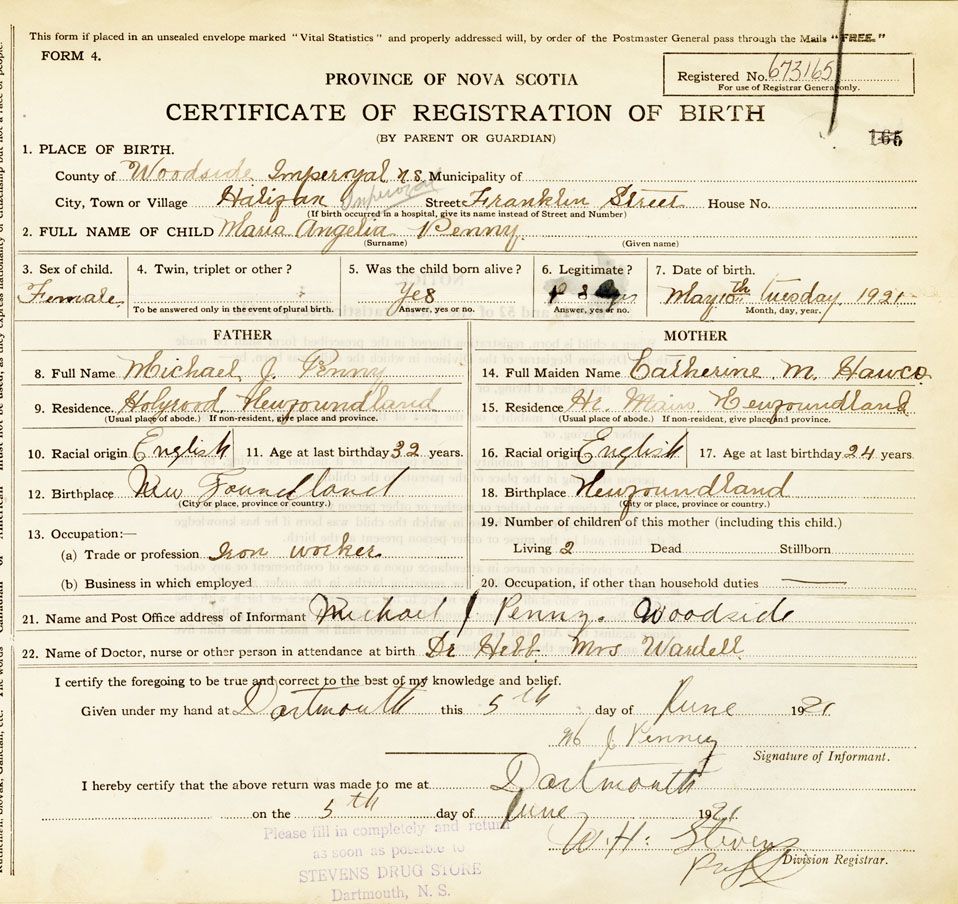 This form if placed in an unsealed envelope marked "Vital Statistics" and properly addressed will, by order of the Postmaster General pass through the Mails "FREE."
FORM 4.
PROVINCE OF NOVA SCOTIA
Registered No. 673165
For use of Registrar General only.
CERTIFICATE OF REGISTRATION OF BIRTH
(BY PARENT OR GUARDIAN)
165
1. PLACE OF BIRTH.
County of Woodside Imperoyal N.S. Municipality of
City, Town or Village Halifax Imperoyal Street Franklin Street House No.
(If birth occurred in a hospital, give its name instead of Street and Number)
2. FULL NAME OF CHILD Maria Angelia Penny
(Surname) (Given name)
3. Sex of child. 4. Twin, triplet or other? 5. Was the child born alive? 6. Legitimate? 7. Date of birth.
Female Yes yes May 10th tuesday 1921
To be answered only in the event of plural birth. Answer, yes or no. Answer, yes or no. Month, day, year.
FATHER MOTHER
8. Full Name Michael J. Penny 14. Full Maiden Name Catherine M. Hawco
9. Residence. Holyrood, Newfoundland 15. Residence Hr. Main Newfoundland
(Usual place of abode.) If non-resident, give place and province. (Usual place of abode.) If non-resident, give place and province.
10. Racial origin English 11. Age at last birthday 32 years. 16. Racial origin English 17. Age at last birthday 24 years.
12. Birthplace New Foundland 18. Birthplace Newfoundland
(City or place, province or country.) (City or place, province or country.)
13. Occupation:— 19. Number of children of this mother (including this child.)
(a) Trade or profession Iron worker Living 2 Dead Stillborn
(b) Business in which employed 20. Occupation, if other than household duties —
21. Name and Post Office address of Informant Michael J Penny. Woodside
22. Name of Doctor, nurse or other person in attendance at birth Dr Hebb Mrs Wardell
I certify the foregoing to be true and correct to the best of my knowledge and belief.
Given under my hand at Dartmouth this 5th day of June 1921
M J Penney
Signature of Informant.
I hereby certify that the above return was made to me at Dartmouth
on the 5th day of June 1921
Please fill in completely and return
as soon as possible to
STEVENS DRUG STORE
Dartmouth, N. S.
W. H. Stevens
Division Registrar.